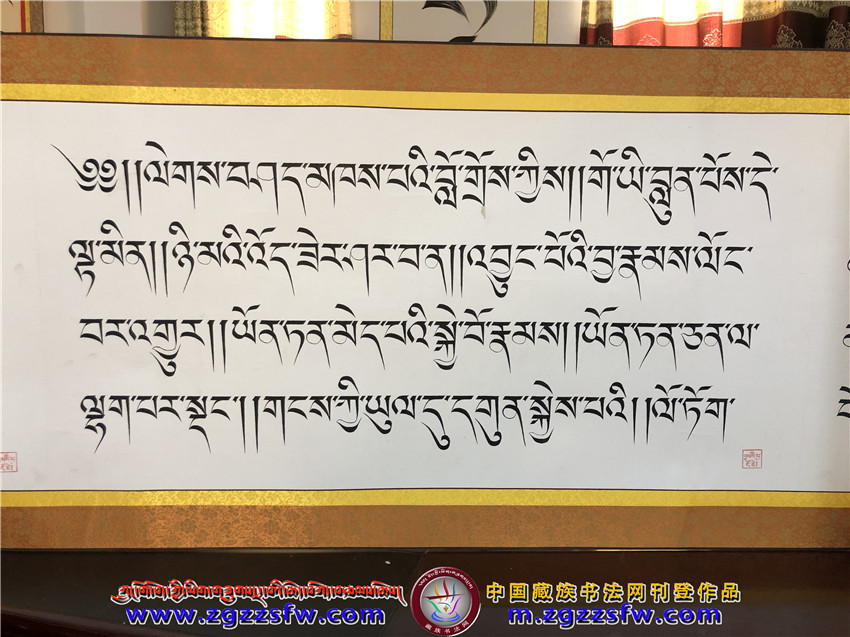 ༄༅།།ལེགས་བཤད་མཁས་པའི་བློ་གྲོས་ཀྱིས།།གོ་ཡི་བླུན་པོས་དེ་
ལྟ་མིན།།ཉི་མའི་འོད་ཟེར་ཤར་བ་ན།།འབྱུང་པོའི་བྱ་རྣམས་ལོང་
བར་འགྱུར།།ཡོན་ཏན་མེད་པའི་སྐྱེ་བོ་རྣམས།།ཡོན་ཏན་ཅན་ལ་
ལྷག་པར་སྡང་།།གངས་ཀྱི་ཡུལ་དུ་དགུན་སྐྱེས་པའི།།ལོ་ཏོག་
中国藏族书法网刊登作品
www.zgzzsfw.com
藏族书法网
m.zgzzsfw.com